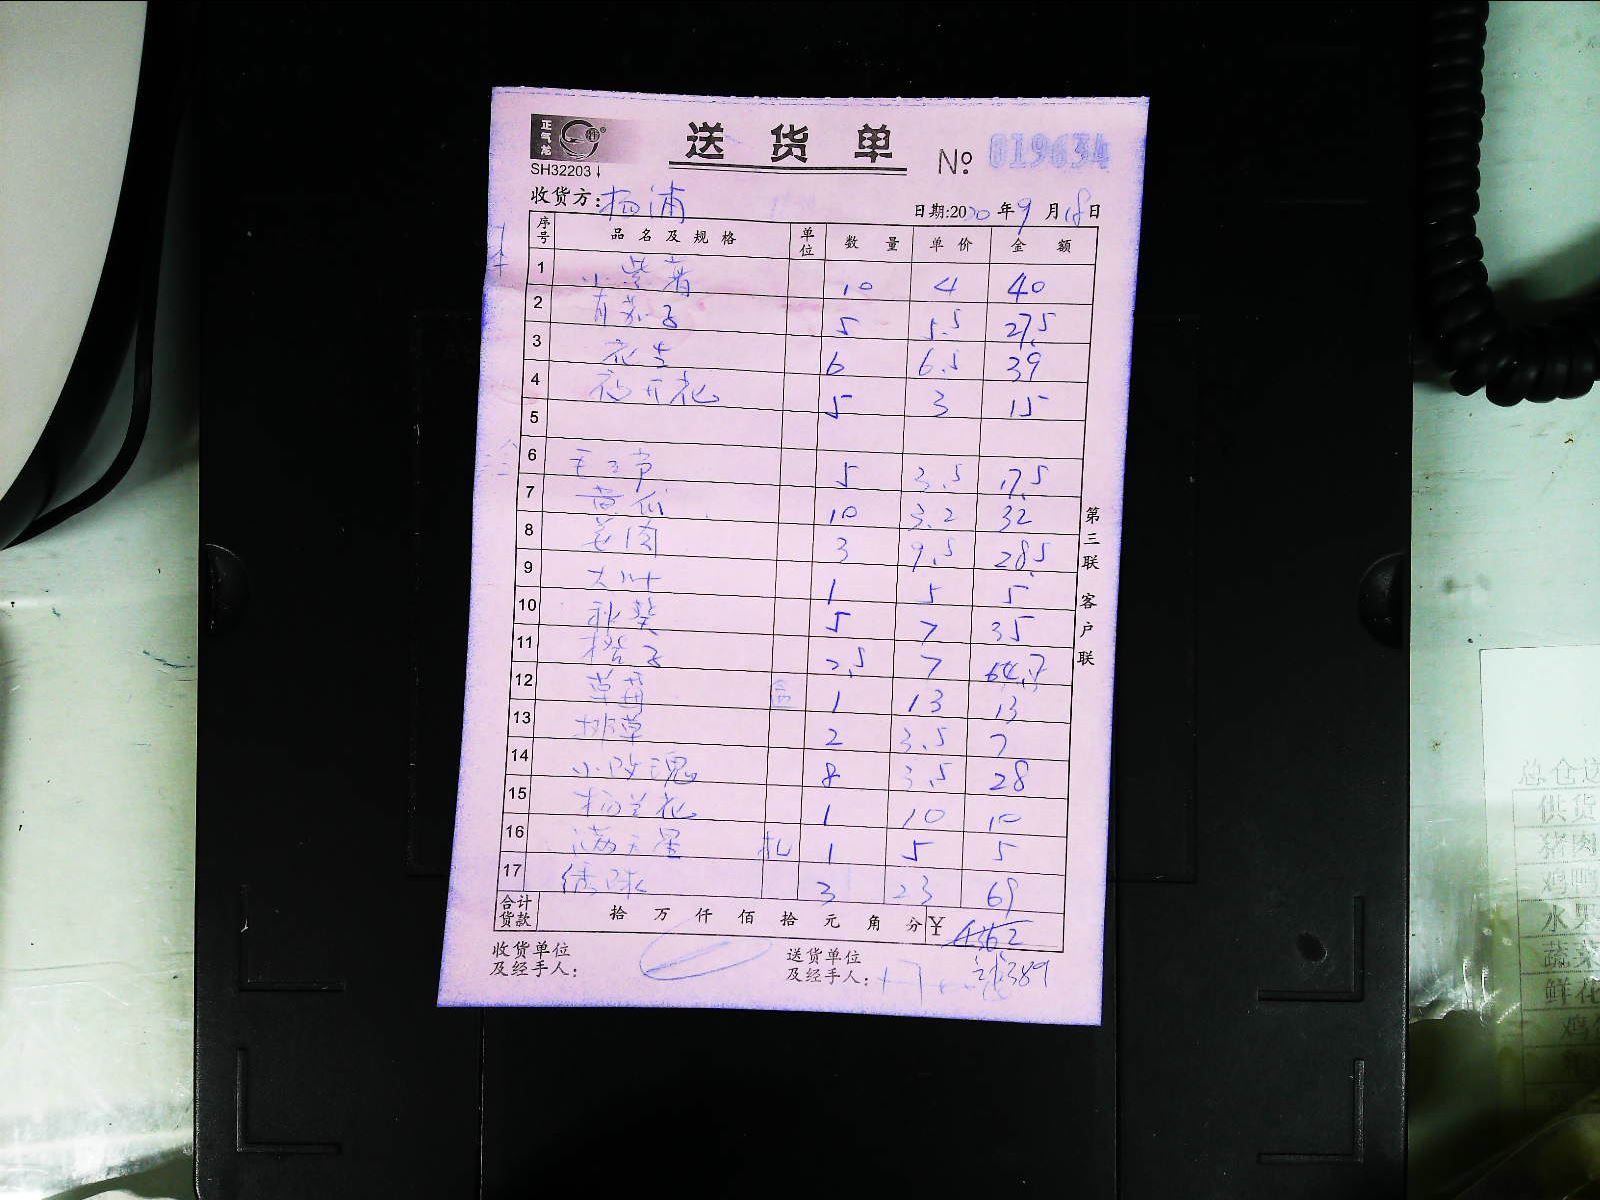 正气龙
SH32203
送货单
№ 019634
收货方: 杨浦
日期:2020年9月18日
序号 品名及规格 单位 数量 单价 金额
1 小紫薯 10 4 40
2 5 5.5 27.5
3 花生 6 6.5 39
4 5 3 15
5
6 5 3.5 17.5
7 黄瓜 10 3.2 32
8 3 9.5 28.5
9 大叶 1 5 5
10 秋葵 5 7 35
11 橙子 7
12 草莓 盒 1 13 13
13 排草 2 3.5 7
14 小玫瑰 8 3.5 28
15 杨兰花 1 10 10
16 满天星 扎 1 5 5
17 绣球 3 23 69
合计货款 拾 万 仟 佰 拾 元 角 分 ¥
收货单位及经手人:
送货单位及经手人: 389
第三联 客户联
总仓送
供货
猪肉
鸡鸭
水果
蔬菜
鲜花